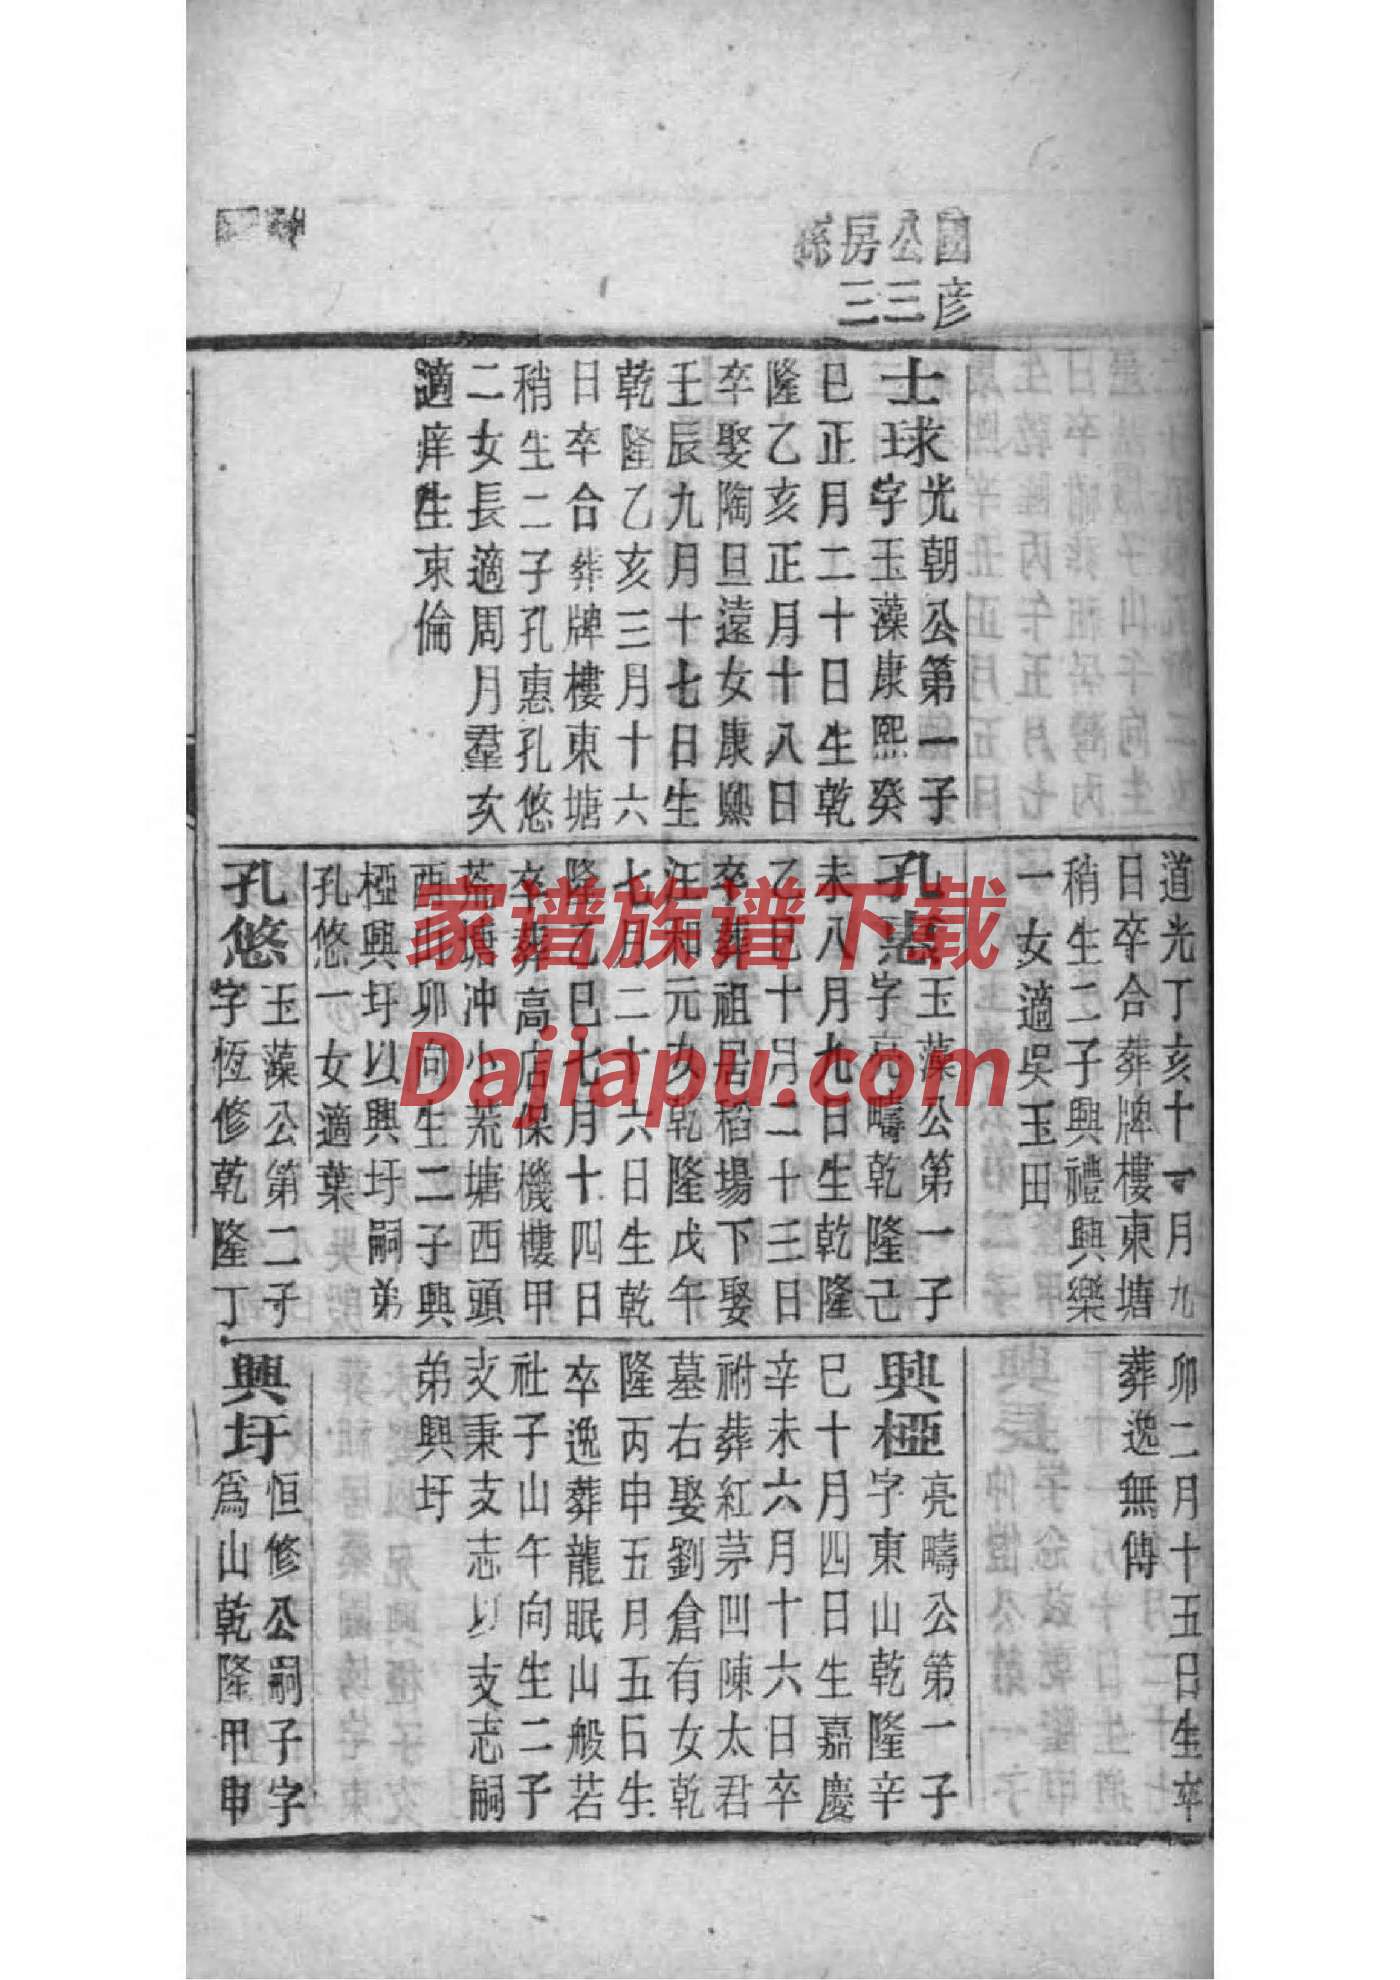 國彦
公三
房三
孫
士球光朝公第一子
字玉藻康熙癸
巳正月二十日生乾
隆乙亥正月十八日
卒娶陶旦遠女康熙
壬辰九月十七日生
乾隆乙亥三月十六
日卒合葬牌樓東塘
稍生二子孔惠孔悠
二女長適周月羣次
適庠生東倫
道光丁亥十一月九
日卒合葬牌樓東塘
稍生二子興禮興樂
一女適吳玉田
孔惠玉藻公第一子
字亮疇乾隆己
未八月九日生乾隆
乙巳十月二十三日
卒葬祖居稻場下娶
汪和元女乾隆戊午
七月二十六日生乾
隆乙巳七月十四日
卒葬高店保機樓甲
荒塘冲小荒塘西頭
酉山卯向生二子興
椏興圩以興圩嗣弟
孔悠一女適葉
孔悠玉藻公第二子
字恆修乾隆丁
卯二月十五日生卒
葬逸無傳
興椏亮疇公第一子
字東山乾隆辛
巳十月四日生嘉慶
辛未六月十六日卒
祔葬紅茅凹陳太君
墓右娶劉倉有女乾
隆丙申五月五日生
卒逸葬龍眠山般若
社子山午向生二子
支秉支志以支志嗣
弟興圩
興圩恒修公嗣子字
爲山乾隆甲申
家谱族谱下载
Dajiapu.com